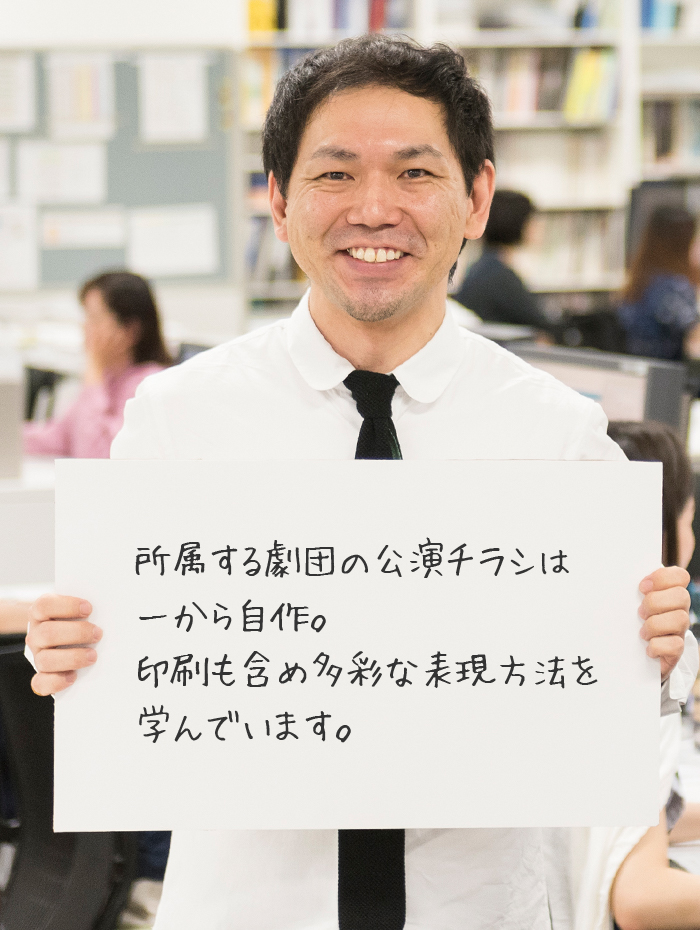 所属する劇団の公演チラシは
一から自作。
印刷も含め多彩な表現方法を
学んでいます。